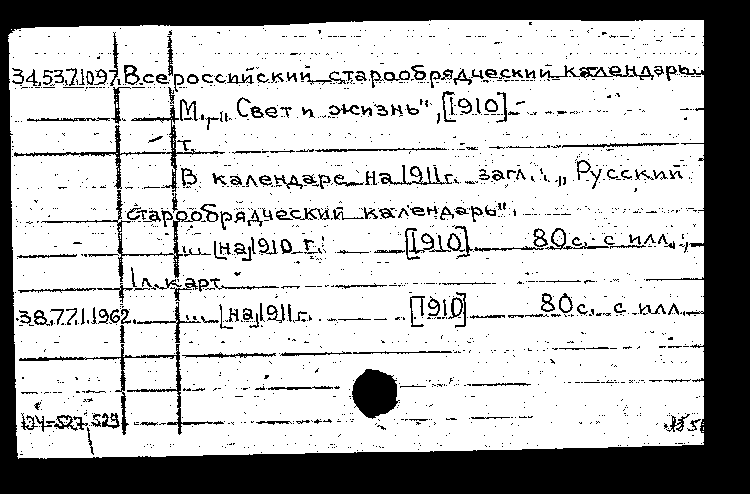 34.53.7.1097. Всероссийский старообрядческий календарь...
М., „Свет и жизнь", [1910] -
т.
В календаре на 1911 г. загл.: „Русский
старообрядческий календарь".
... [на] 1910 г. [1910] 80 с. с илл.;
1 л. карт
38.77.1.1962. ... [на] 1911 г. [1910] 80 с. с илл.